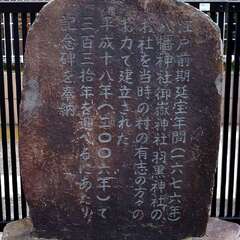 江戸前期延宝年間(一六七六年)
八幡神社御嶽神社羽黒神社の
お社を当時の村の有志の方々の
お力で建立された
平成十八年(二〇〇六年)で
三百三拾年を迎べるにあたり
記念碑を奉納